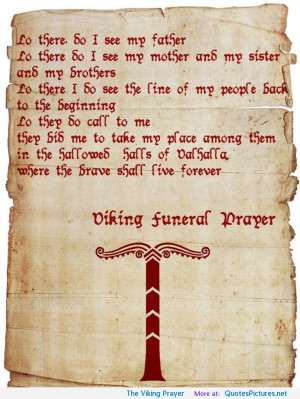 Lo there, do I see my father
Lo there do I see my mother and my sister
and my brothers
Lo there I do see the line of my people back
to the beginning
Lo they do call to me
they bid me to take my place among them
in the hallowed halls of Valhalla,
where the brave shall live forever
Viking Funeral Prayer
The Viking Prayer More at: QuotesPictures.net